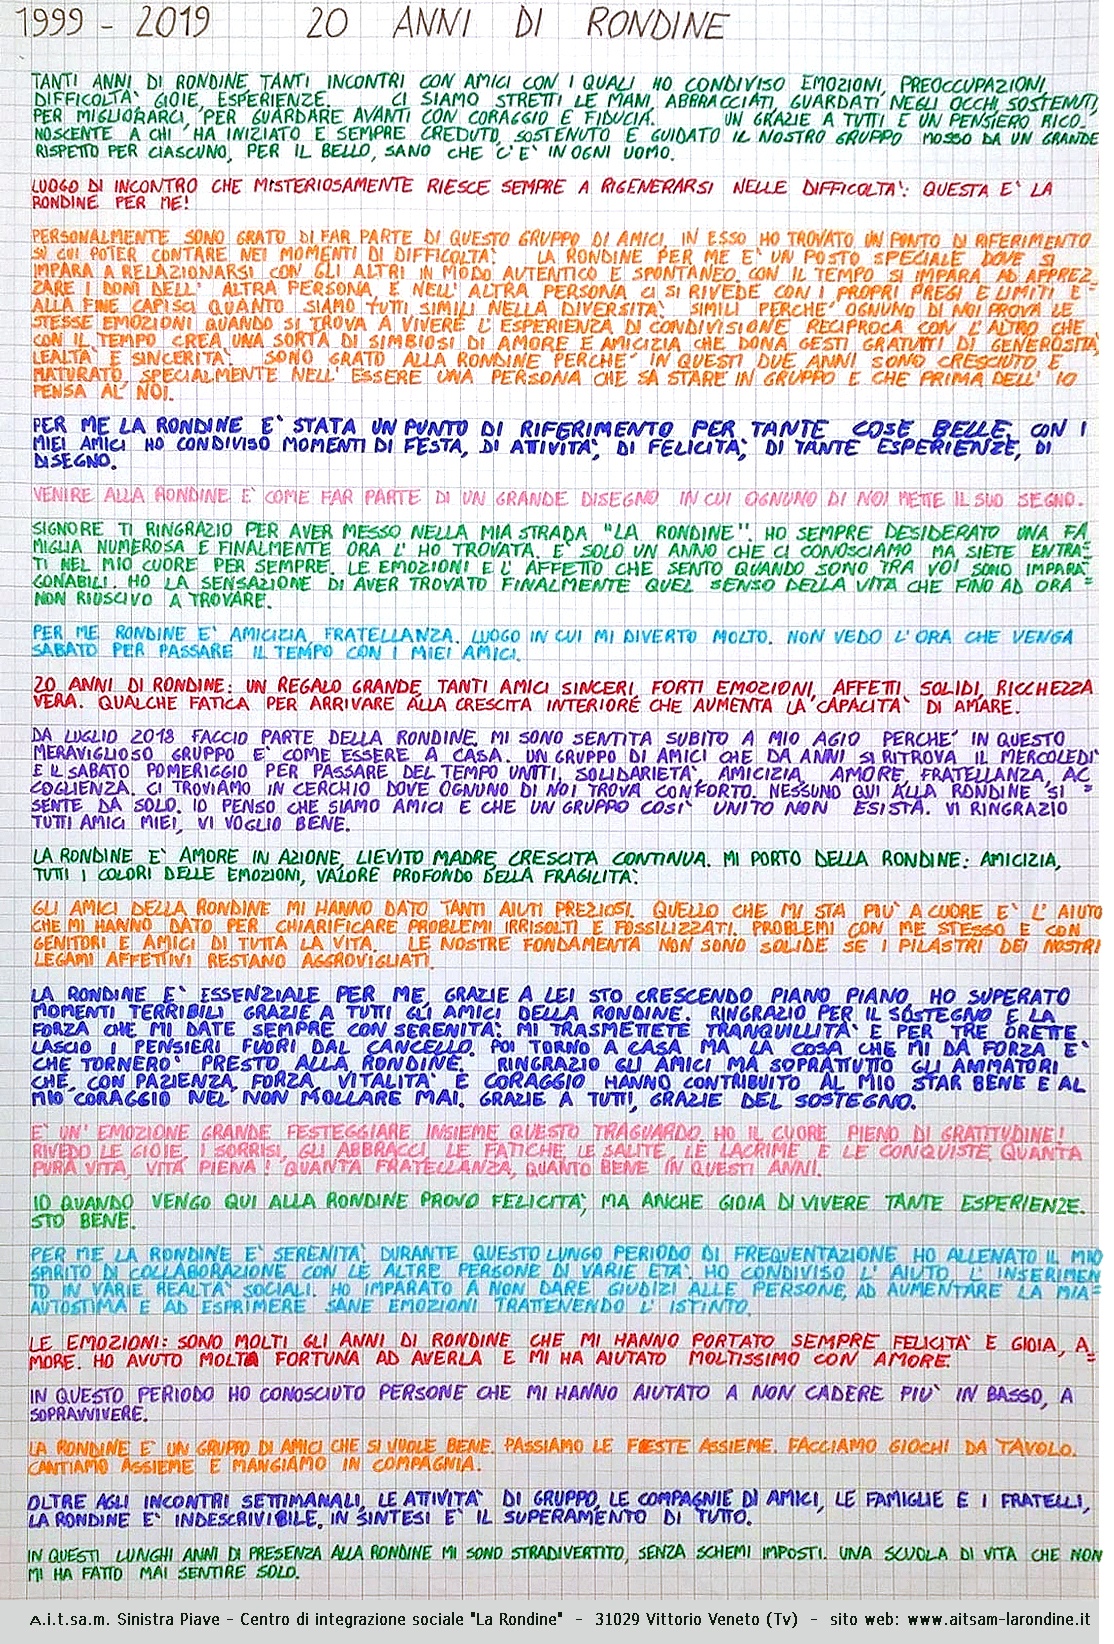 1999 - 2019 20 ANNI DI RONDINE
TANTI ANNI DI RONDINE, TANTI INCONTRI CON AMICI CON I QUALI HO CONDIVISO EMOZIONI, PREOCCUPAZIONI,
DIFFICOLTA', GIOIE, ESPERIENZE. CI SIAMO STRETTI LE MANI, ABBRACCIATI, GUARDATI NEGLI OCCHI, SOSTENUTI,
PER MIGLIORARCI, PER GUARDARE AVANTI CON CORAGGIO E FIDUCIA. UN GRAZIE A TUTTI E UN PENSIERO RICO-
NOSCENTE A CHI HA INIZIATO E SEMPRE CREDUTO, SOSTENUTO E GUIDATO IL NOSTRO GRUPPO MOSSO DA UN GRANDE
RISPETTO PER CIASCUNO, PER IL BELLO, SANO CHE C'E' IN OGNI UOMO.
LUOGO DI INCONTRO CHE MISTERIOSAMENTE RIESCE SEMPRE A RIGENERARSI NELLE DIFFICOLTA': QUESTA E' LA
RONDINE PER ME!
PERSONALMENTE SONO GRATO DI FAR PARTE DI QUESTO GRUPPO DI AMICI, IN ESSO HO TROVATO UN PUNTO DI RIFERIMENTO
SU CUI POTER CONTARE NEI MOMENTI DI DIFFICOLTA'. LA RONDINE PER ME E' UN POSTO SPECIALE DOVE SI
IMPARA A RELAZIONARSI CON GLI ALTRI IN MODO AUTENTICO E SPONTANEO. CON IL TEMPO SI IMPARA AD APPREZ-
ZARE I DONI DELL' ALTRA PERSONA E NELL' ALTRA PERSONA CI SI RIVEDE CON I PROPRI PREGI E LIMITI E
ALLA FINE CAPISCI QUANTO SIAMO TUTTI SIMILI NELLA DIVERSITA'. SIMILI PERCHE' OGNUNO DI NOI PROVA LE
STESSE EMOZIONI QUANDO SI TROVA A VIVERE L' ESPERIENZA DI CONDIVISIONE RECIPROCA CON L'ALTRO CHE
CON IL TEMPO CREA UNA SORTA DI SIMBIOSI DI AMORE E AMICIZIA CHE DONA GESTI GRATUITI DI GENEROSITA',
LEALTA' E SINCERITA'. SONO GRATO ALLA RONDINE PERCHE' IN QUESTI DUE ANNI SONO CRESCIUTO E
MATURATO, SPECIALMENTE NELL' ESSERE UNA PERSONA CHE SA STARE IN GRUPPO E CHE PRIMA DELL' IO
PENSA AL NOI.
PER ME LA RONDINE E' STATA UN PUNTO DI RIFERIMENTO PER TANTE COSE BELLE, CON I
MIEI AMICI HO CONDIVISO MOMENTI DI FESTA, DI ATTIVITA', DI FELICITA', DI TANTE ESPERIENZE, DI
DISEGNO.
VENIRE ALLA RONDINE E' COME FAR PARTE DI UN GRANDE DISEGNO IN CUI OGNUNO DI NOI METTE IL SUO SEGNO.
SIGNORE TI RINGRAZIO PER AVER MESSO NELLA MIA STRADA "LA RONDINE". HO SEMPRE DESIDERATO UNA FA
MIGLIA NUMEROSA E FINALMENTE ORA L' HO TROVATA. E' SOLO UN ANNO CHE CI CONOSCIAMO MA SIETE ENTRA-
TI NEL MIO CUORE PER SEMPRE. LE EMOZIONI E L' AFFETTO CHE SENTO QUANDO SONO TRA VOI SONO IMPARA-
GONABILI. HO LA SENSAZIONE DI AVER TROVATO FINALMENTE QUEL SENSO DELLA VITA CHE FINO AD ORA
NON RIUSCIVO A TROVARE.
PER ME RONDINE E' AMICIZIA, FRATELLANZA. LUOGO IN CUI MI DIVERTO MOLTO. NON VEDO L'ORA CHE VENGA
SABATO PER PASSARE IL TEMPO CON I MIEI AMICI.
20 ANNI DI RONDINE: UN REGALO GRANDE, TANTI AMICI SINCERI, FORTI EMOZIONI, AFFETTI SOLIDI, RICCHEZZA
VERA. QUALCHE FATICA PER ARRIVARE ALLA CRESCITA INTERIORE CHE AUMENTA LA CAPACITA' DI AMARE.
DA LUGLIO 2018 FACCIO PARTE DELLA RONDINE. MI SONO SENTITA SUBITO A MIO AGIO PERCHE' IN QUESTO
MERAVIGLIOSO GRUPPO E' COME ESSERE A CASA. UN GRUPPO DI AMICI CHE DA ANNI SI RITROVA IL MERCOLEDI'
E IL SABATO POMERIGGIO PER PASSARE DEL TEMPO UNITI, SOLIDARIETA', AMICIZIA, AMORE, FRATELLANZA, AC
COGLIENZA. CI TROVIAMO IN CERCHIO DOVE OGNUNO DI NOI TROVA CONFORTO. NESSUNO QUI ALLA RONDINE SI
SENTE DA SOLO. IO PENSO CHE SIAMO AMICI E CHE UN GRUPPO COSI' UNITO NON ESISTA. VI RINGRAZIO
TUTTI AMICI MIEI, VI VOGLIO BENE.
LA RONDINE E' AMORE IN AZIONE, LIEVITO MADRE, CRESCITA CONTINUA. MI PORTO DELLA RONDINE: AMICIZIA,
TUTTI I COLORI DELLE EMOZIONI, VALORE PROFONDO DELLA FRAGILITA'.
GLI AMICI DELLA RONDINE MI HANNO DATO TANTI AIUTI PREZIOSI. QUELLO CHE MI STA PIU' A CUORE E' L' AIUTO
CHE MI HANNO DATO PER CHIARIFICARE PROBLEMI IRRISOLTI E FOSSILIZZATI. PROBLEMI CON ME STESSO E CON
GENITORI E AMICI DI TUTTA LA VITA. LE NOSTRE FONDAMENTA NON SONO SOLIDE SE I PILASTRI DEI NOSTRI
LEGAMI AFFETTIVI RESTANO AGGROVIGLIATI.
LA RONDINE E' ESSENZIALE PER ME, GRAZIE A LEI STO CRESCENDO PIANO PIANO, HO SUPERATO
MOMENTI TERRIBILI GRAZIE A TUTTI GLI AMICI DELLA RONDINE. RINGRAZIO PER IL SOSTEGNO E LA
FORZA CHE MI DATE SEMPRE CON SERENITA'. MI TRASMETTETE TRANQUILLITA' E PER TRE ORETTE
LASCIO I PENSIERI FUORI DAL CANCELLO. POI TORNO A CASA MA LA COSA CHE MI DA FORZA E'
CHE TORNERO' PRESTO ALLA RONDINE. RINGRAZIO GLI AMICI MA SOPRATTUTTO GLI ANIMATORI
CHE, CON PAZIENZA, FORZA, VITALITA' E CORAGGIO HANNO CONTRIBUITO AL MIO STAR BENE E AL
MIO CORAGGIO NEL NON MOLLARE MAI. GRAZIE A TUTTI, GRAZIE DEL SOSTEGNO.
E' UN' EMOZIONE GRANDE FESTEGGIARE INSIEME QUESTO TRAGUARDO. HO IL CUORE PIENO DI GRATITUDINE!
RIVEDO LE GIOIE, I SORRISI, GLI ABBRACCI, LE FATICHE, LE SALITE, LE LACRIME E LE CONQUISTE, QUANTA
PURA VITA, VITA PIENA! QUANTA FRATELLANZA, QUANTO BENE IN QUESTI ANNI.
IO QUANDO VENGO QUI ALLA RONDINE PROVO FELICITA', MA ANCHE GIOIA DI VIVERE TANTE ESPERIENZE.
STO BENE.
PER ME LA RONDINE E' SERENITA'. DURANTE QUESTO LUNGO PERIODO DI FREQUENTAZIONE HO ALLENATO IL MIO
SPIRITO DI COLLABORAZIONE CON LE ALTRE PERSONE DI VARIE ETA'. HO CONDIVISO L' AIUTO L' INSERIMEN
TO IN VARIE REALTA' SOCIALI. HO IMPARATO A NON DARE GIUDIZI ALLE PERSONE, AD AUMENTARE LA MIA
AUTOSTIMA E AD ESPRIMERE SANE EMOZIONI TRATTENENDO L' ISTINTO.
LE EMOZIONI: SONO MOLTI GLI ANNI DI RONDINE CHE MI HANNO PORTATO SEMPRE FELICITA' E GIOIA, A-
MORE. HO AVUTO MOLTA FORTUNA AD AVERLA E MI HA AIUTATO MOLTISSIMO CON AMORE.
IN QUESTO PERIODO HO CONOSCIUTO PERSONE CHE MI HANNO AIUTATO A NON CADERE PIU' IN BASSO, A
SOPRAVVIVERE.
LA RONDINE E' UN GRUPPO DI AMICI CHE SI VUOLE BENE. PASSIAMO LE FESTE ASSIEME. FACCIAMO GIOCHI DA TAVOLO.
CANTIAMO ASSIEME E MANGIAMO IN COMPAGNIA.
OLTRE AGLI INCONTRI SETTIMANALI, LE ATTIVITA' DI GRUPPO, LE COMPAGNIE DI AMICI, LE FAMIGLIE E I FRATELLI,
LA RONDINE E' INDESCRIVIBILE. IN SINTESI E' IL SUPERAMENTO DI TUTTO.
IN QUESTI LUNGHI ANNI DI PRESENZA ALLA RONDINE MI SONO STRADIVERTITO, SENZA SCHEMI IMPOSTI. UNA SCUOLA DI VITA CHE NON
MI HA FATTO MAI SENTIRE SOLO.
A.i.t.sa.m. Sinistra Piave - Centro di integrazione sociale "La Rondine" - 31029 Vittorio Veneto (Tv) - sito web: www.aitsam-larondine.it